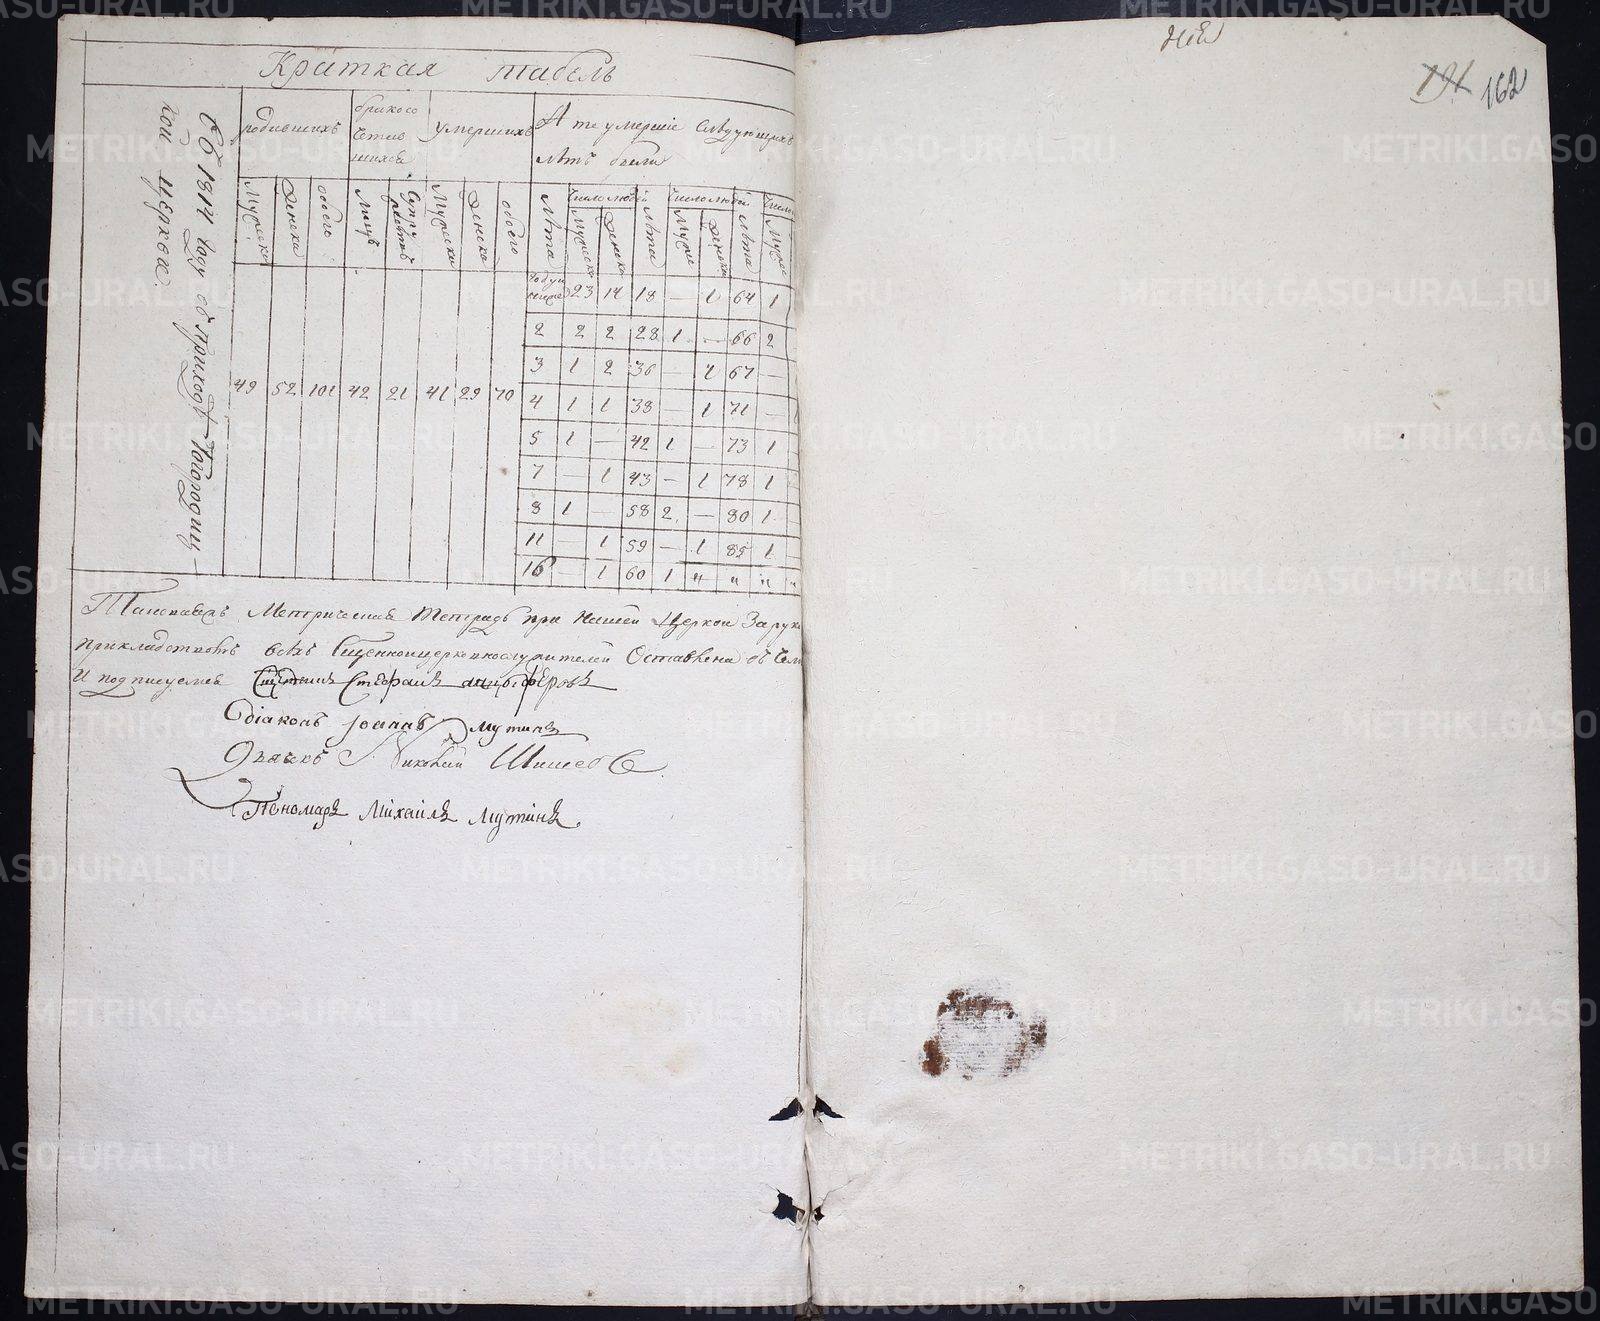 Краткая табель
Въ 1814 году въ приходѣ Богородиц-
кой церкви
родившихъ
бракосо
четав
шихся
умершихъ
А те умершіе слѣдующихъ
лѣтъ были
Мужеска
Женска
обоего
Лицъ
Супру
жествъ
Мужеска
Женска
обоего
Лѣта
Число людей
Мужеска
Женска
Лѣта
Число людей
Мужес
Женска
Лѣта
Число
Мужес
49 52 101 42 21 41 29 70
23 14 18 — 1 64 1
2 2 2 28 1 — 66 2
3 1 2 36 — 1 67 —
4 1 1 38 — 1 71 —
5 1 — 42 1 — 73 1
7 — 1 43 — 1 78 1
8 1 — 58 2 — 80 1
11 — 1 59 — 1 85 1
16 — 1 60 1 " " " "
Таковаяжъ Метрическая Тетрадь при нашей Церкви За руко
прикладствомъ всѣхъ Сщенноцерковнослужителей Оставлена въ чем
И подписуемся Сщенникъ Стефанъ
Діаконъ Іоаннъ Мутинъ
Дьячекъ Николай Шишевъ
Пономарь Михаилъ Мутинъ
191 162
METRIKI.GASO-URAL.RU